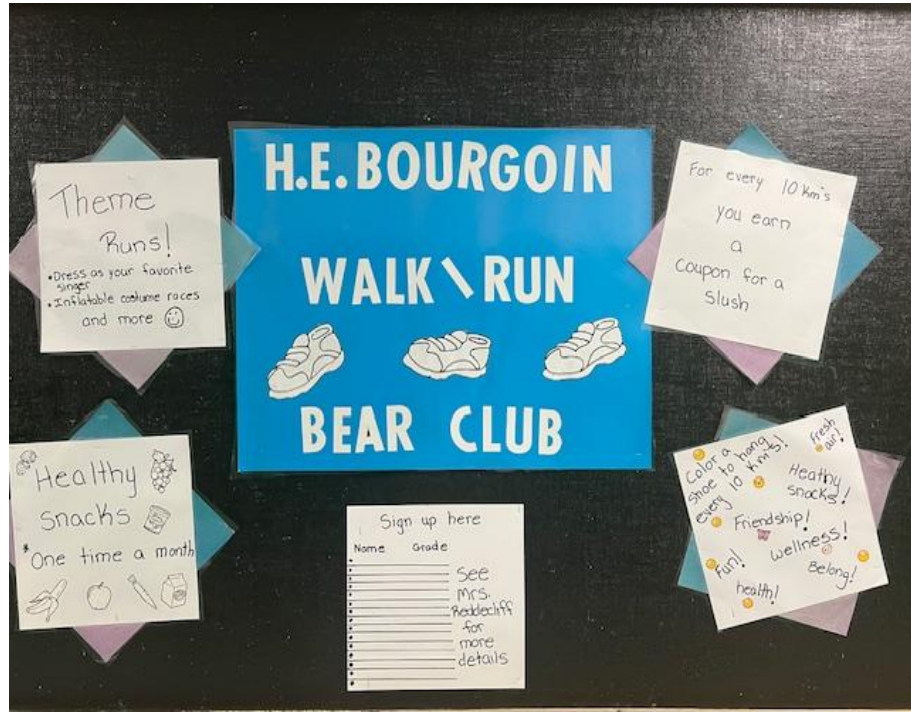 H.E. BOURGOIN
WALK \ RUN
BEAR CLUB
Theme
Runs!
• Dress as your favorite
singer
• Inflatable costume races
and more
For every 10 km's
you earn
a
coupon for a
slush
Healthy
snacks
* One time a month
Sign up here
Name Grade
See
Mrs.
Reddecliff
for
more
details
Color a
shoe to hang
every 10 km's!
Fresh
air!
Heathy
snacks!
Friendship!
Wellness!
Fun!
Belong!
health!